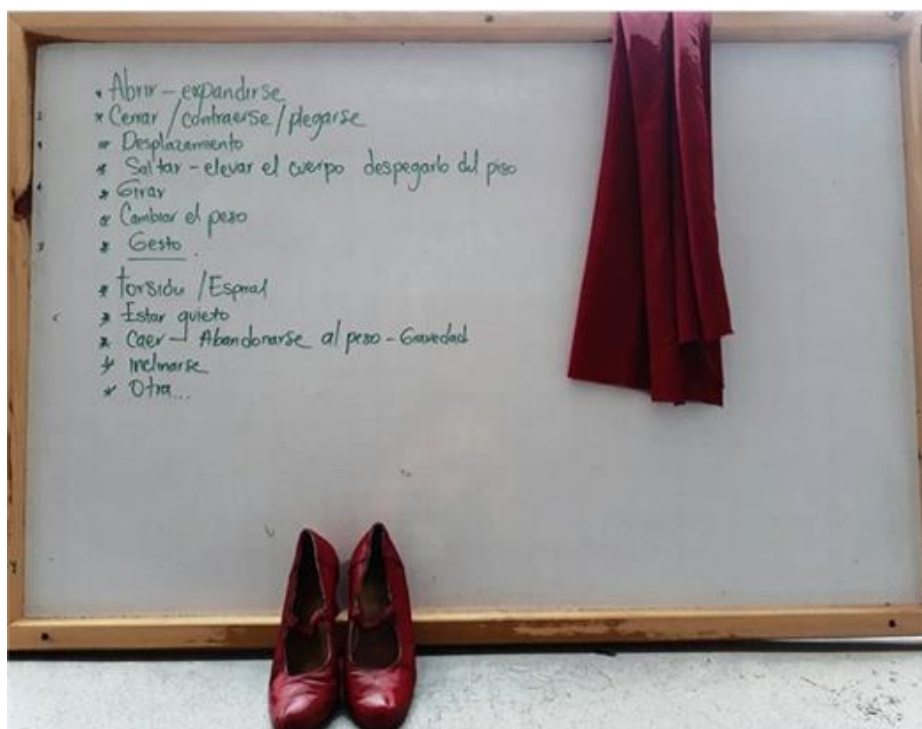 * Abrir - expandirse
* Cerrar / contraerse / plegarse
* Desplazamiento
* Saltar - elevar el cuerpo despegarlo del piso
* Girar
* Cambiar el peso
* Gesto.
* torsión / Espiral
* Estar quieto
* Caer → Abandonarse al peso - Gravedad
* Inclinarse
* Otra...